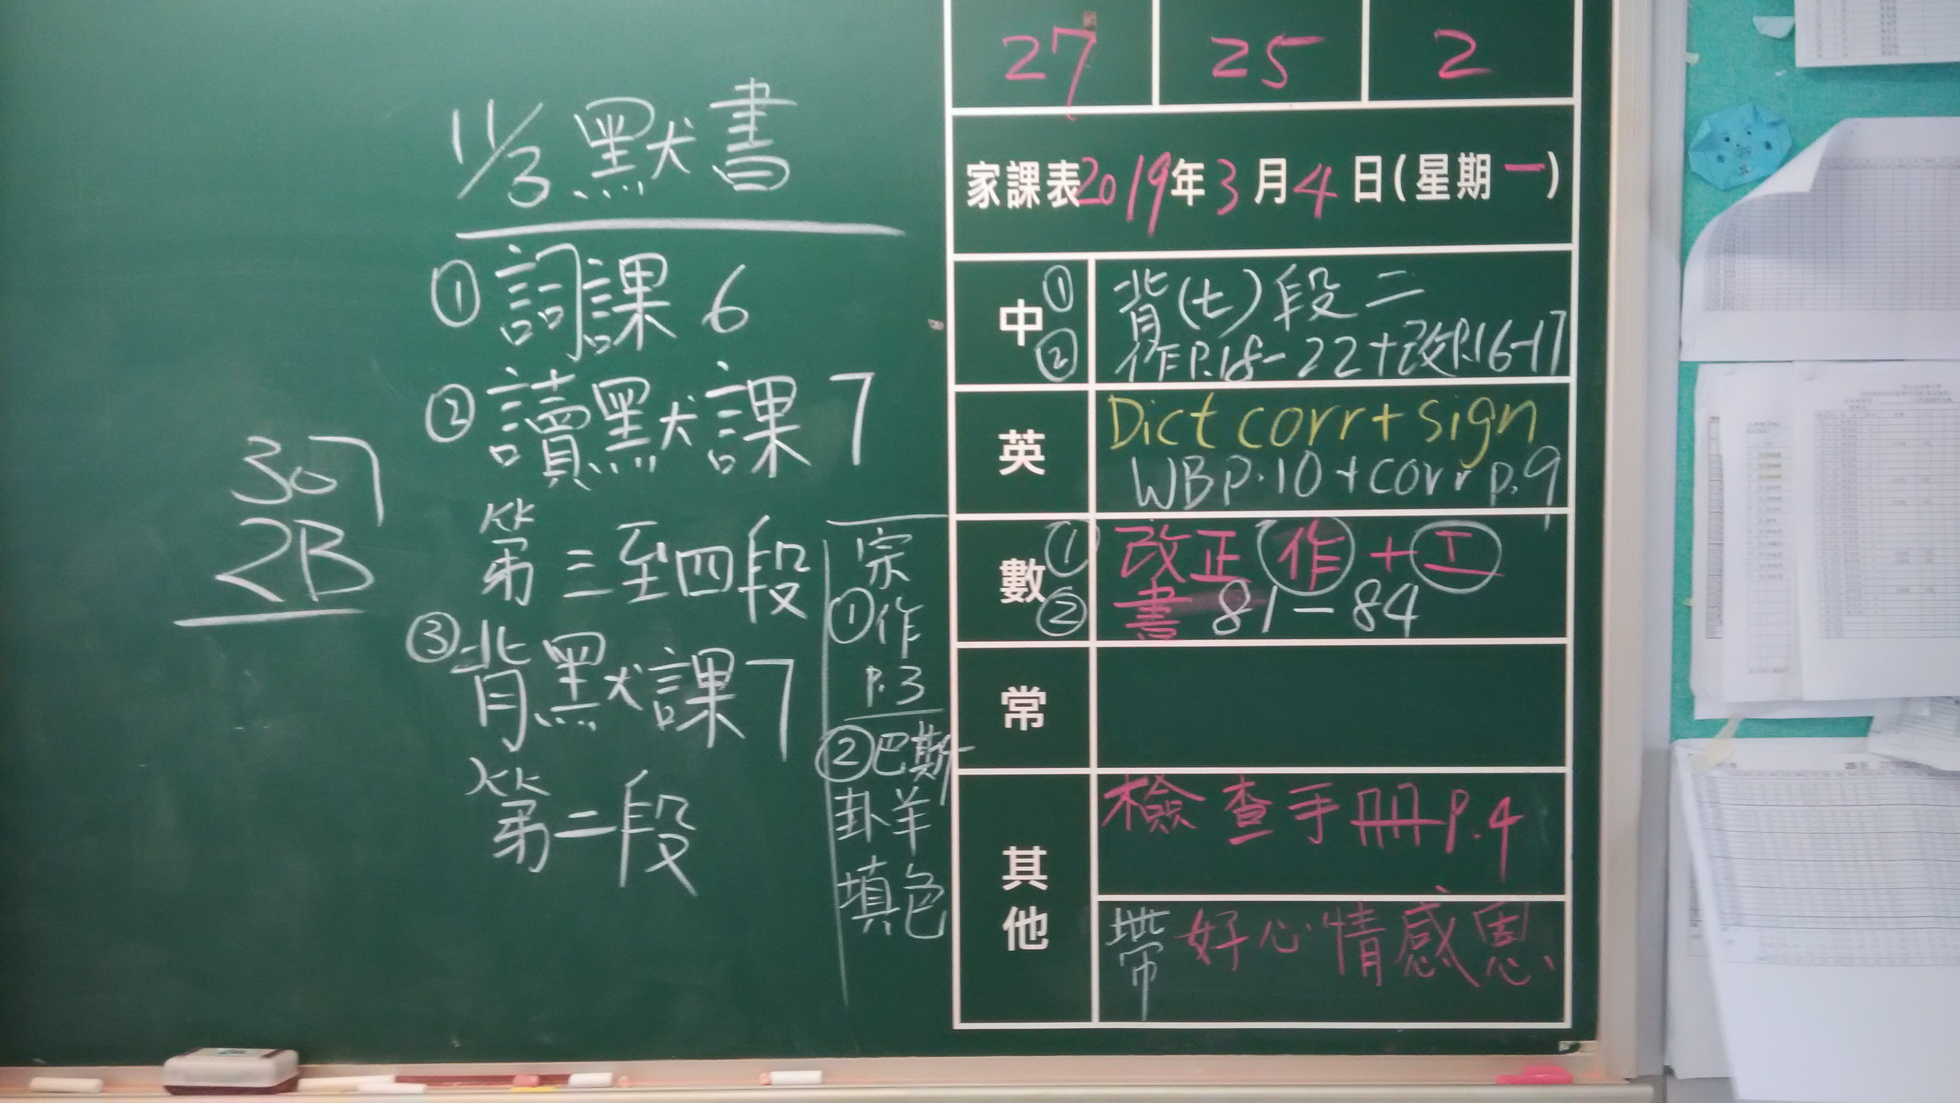 11/3 默書
① 詞課 6
② 讀默課 7
第三至四段
③ 背默課 7
第二段
307
2B
宗
① 作
P.3
② 巴斯
卦羊
填色
27 25 2
家課表 2019年3月4日(星期一)
中 ① 背(七)段二
② 作P.18-22+改P.16-17
英 Dict corr + sign
WB p.10 + corr p.9
數 ① 改正 作 + 工
② 書 81-84
常
其他 檢查手冊 P.4
帶 好心情感恩